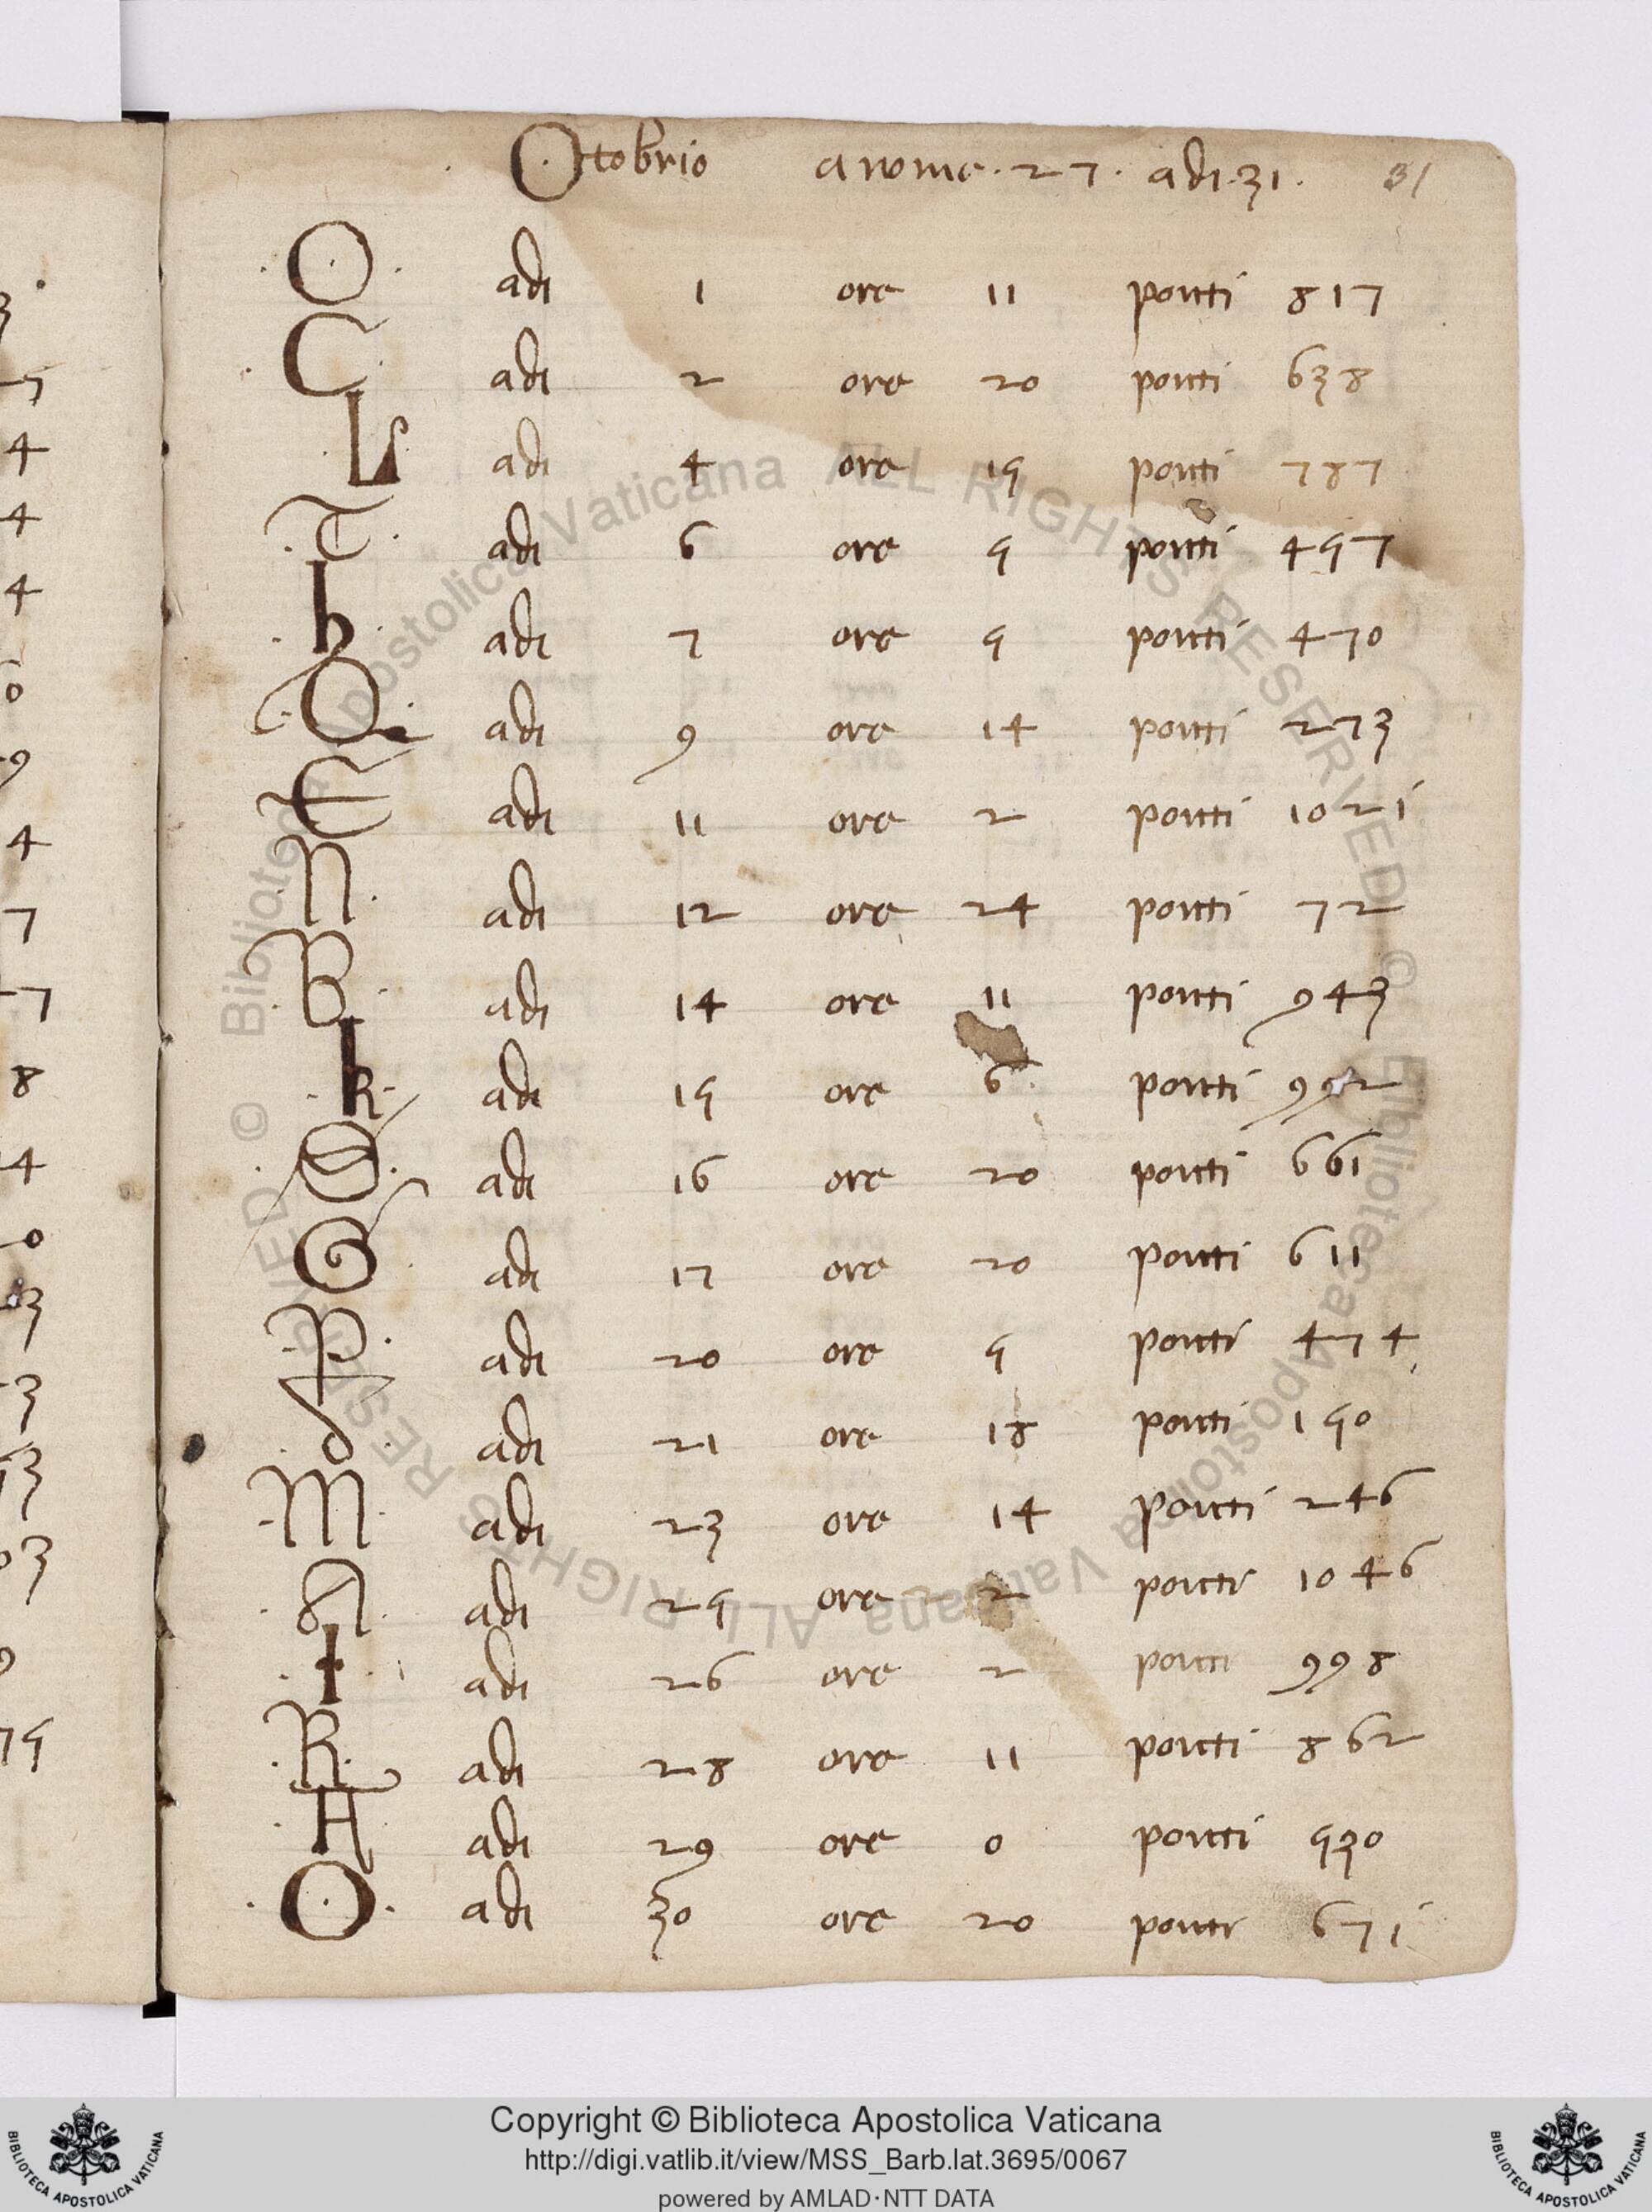 Otobrio a nome . 27 . adi . 31 . 31
. O . adi 1 ore 11 pontti 817
. C . adi 2 ore 20 pontti 638
. L . adi 4 ore 15 pontti 787
. T . adi 6 ore 5 pontti 457
. h . adi 7 ore 5 pontti 470
. Q . adi 9 ore 14 pontti 273
E adi 11 ore 2 pontti 1021
. N . adi 12 ore 24 pontti 72
. B . adi 14 ore 11 pontti 943
. K . adi 15 ore 6 pontti 992
. S . adi 16 ore 20 pontti 661
G . adi 17 ore 20 pontti 611
. P . adi 20 ore 5 pontti 474
. d . adi 21 ore 18 pontti 150
. M . adi 23 ore 14 pontti 246
. A . adi 25 ore 2 pontti 1046
. I . adi 26 ore 2 pontti 998
. R . adi 28 ore 11 pontti 862
. H adi 29 ore 0 pontti 530
. O . adi 30 ore 20 pontti 671
© Biblioteca Apostolica Vaticana ALL RIGHTS RESERVED © Biblioteca Apostolica Vaticana ALL RIGHTS RESERVED
Copyright © Biblioteca Apostolica Vaticana
http://digi.vatlib.it/view/MSS_Barb.lat.3695/0067
powered by AMLAD·NTT DATA
BIBLIOTECA APOSTOLICA VATICANA
BIBLIOTECA APOSTOLICA VATICANA